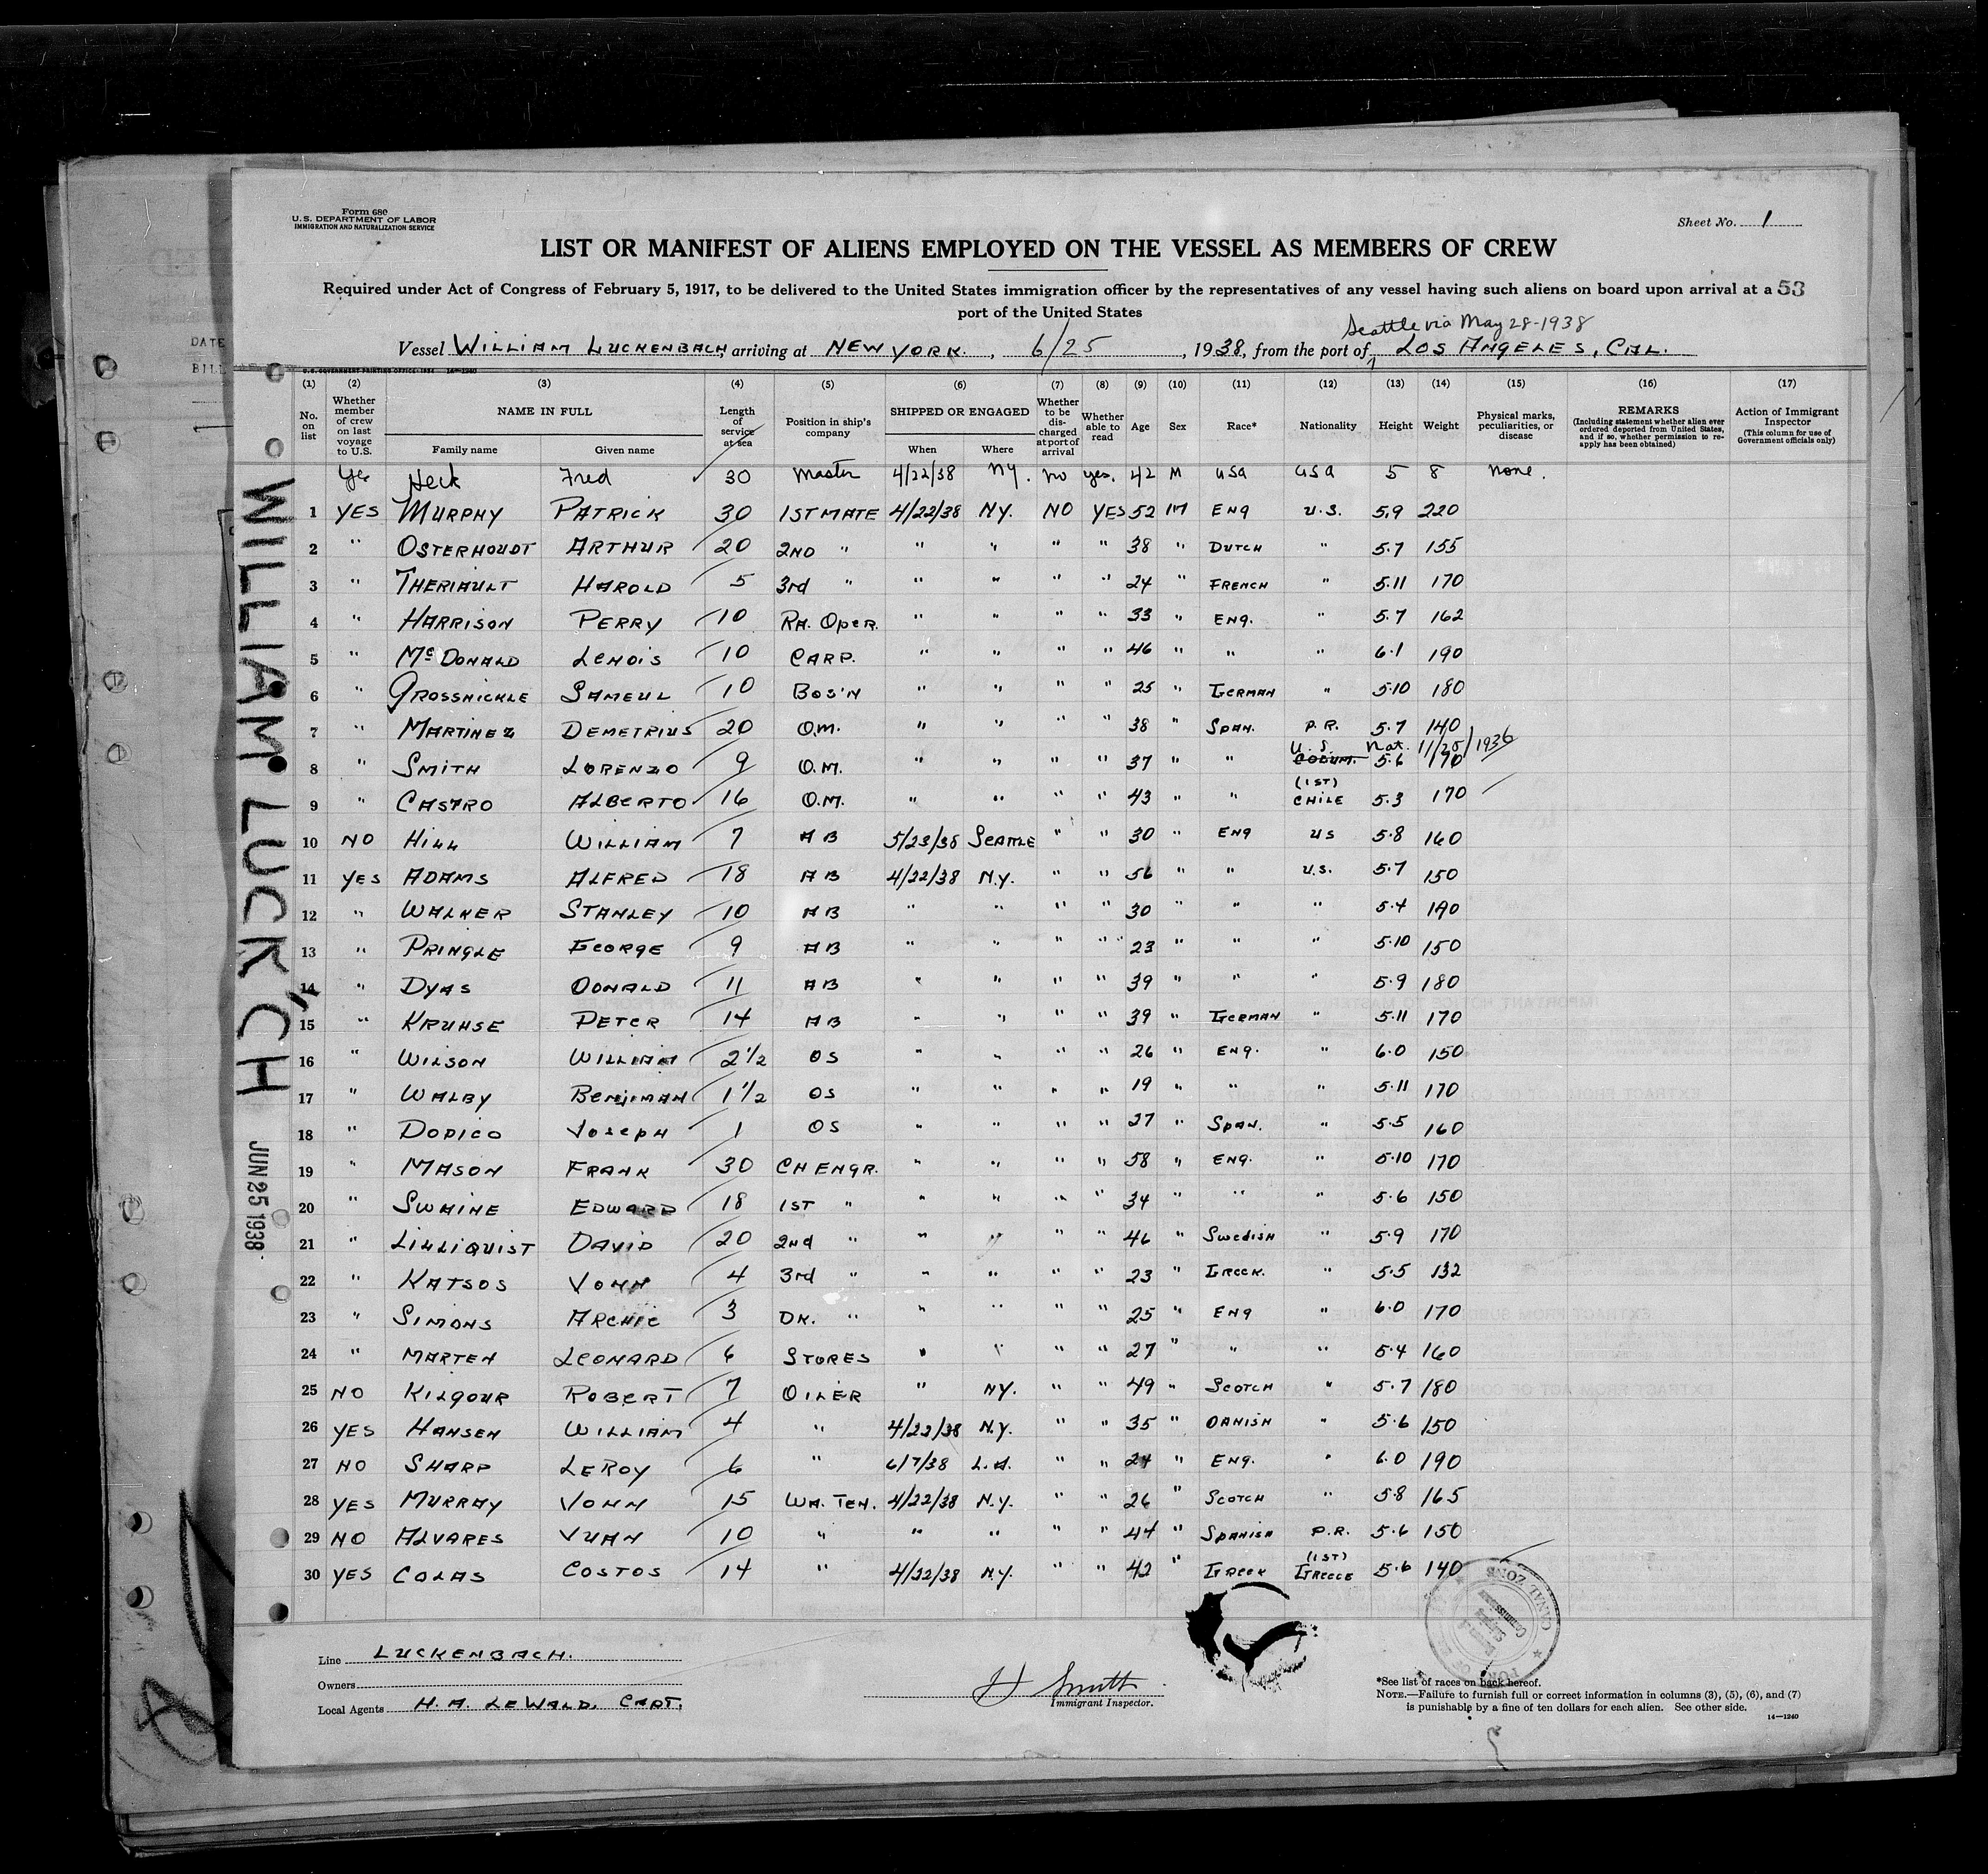 Form 680
U.S. DEPARTMENT OF LABOR
IMMIGRATION AND NATURALIZATION SERVICE
Sheet No. 1
LIST OR MANIFEST OF ALIENS EMPLOYED ON THE VESSEL AS MEMBERS OF CREW
Required under Act of Congress of February 5, 1917, to be delivered to the United States immigration officer by the representatives of any vessel having such aliens on board upon arrival at a 53
port of the United States
Seattle via May 28-1938
Vessel WILLIAM LUCKENBACH, arriving at NEW YORK., 6/25, 1938, from the port of LOS ANGELES, CAL.
(1) (2) (3) (4) (5) (6) (7) (8) (9) (10) (11) (12) (13) (14) (15) (16) (17)
No. on list Whether member of crew on last voyage to U.S. NAME IN FULL Family name Given name Length of service at sea Position in ship's company SHIPPED OR ENGAGED When Where Whether to be discharged at port of arrival Whether able to read Age Sex Race* Nationality Height Weight Physical marks, peculiarities, or disease REMARKS (Including statement whether alien ever ordered deported from United States, and if so, whether permission to reapply has been obtained) Action of Immigrant Inspector (This column for use of Government officials only)
Yes Heck Fred 30 Master 4/22/38 NY. No yes. 42 M USA USA 5 8 None.
1 YES MURPHY PATRICK 30 1ST MATE 4/22/38 NY. NO YES 52 M ENG U.S. 5.9 220
2 " OSTERHOUDT ARTHUR 20 2ND " " " " " 38 " DUTCH " 5.7 155
3 " THERIAULT HAROLD 5 3rd " " " " " 24 " FRENCH " 5.11 170
4 " HARRISON PERRY 10 RA. OPER. " " " " 33 " ENG. " 5.7 162
5 " McDONALD LENOIS 10 CARP. " " " " 46 " " " 6.1 190
6 " GROSSNICKLE SAMEUL 10 BOS'N " " " " 25 " GERMAN " 5.10 180
7 " MARTINEZ DEMETRIUS 20 Q.M. " " " " 38 " SPAN. P.R. 5.7 140
U.S. Nat. 11/25/1936
8 " SMITH LORENZO 9 Q.M. " " " " 37 " " COLUM. 5.6 170
9 " CASTRO ALBERTO 16 Q.M. " " " " 43 " " (1ST) CHILE 5.3 170
10 NO HILL WILLIAM 7 AB 5/23/38 SEATTLE " " 30 " ENG US 5.8 160
11 YES ADAMS ALFRED 18 AB 4/22/38 N.Y. " " 56 " " U.S. 5.7 150
12 " WALKER STANLEY 10 AB " " " " 30 " " " 5.4 190
13 " PRINGLE GEORGE 9 AB " " " " 23 " " " 5.10 150
14 " DYAS DONALD 11 AB " " " " 39 " " " 5.9 180
15 " KRUHSE PETER 14 AB " " " " 39 " GERMAN " 5.11 170
16 " WILSON WILLIAM 2 1/2 OS " " " " 26 " ENG. " 6.0 150
17 " WALBY BENJIMAN 1 1/2 OS " " " " 19 " " " 5.11 170
18 " DOPICO JOSEPH 1 OS " " " " 27 " SPAN. " 5.5 160
19 " MASON FRANK 30 CH ENGR. " " " " 58 " ENG. " 5.10 170
20 " SWAINE EDWARD 18 1ST " " " " " 34 " " " 5.6 150
21 " LILLIQUIST DAVID 20 2nd " " " " " 46 " SWEDISH " 5.9 170
22 " KATSOS JOHN 4 3rd " " " " " 23 " GREEK. " 5.5 132
23 " SIMONS ARCHIE 3 DK. " " " " " 25 " ENG " 6.0 170
24 " MARTEN LEONARD 6 STORES " " " " 27 " " " 5.4 160
25 NO KILGOUR ROBERT 7 OILER " NY. " " 49 " SCOTCH " 5.7 180
26 YES HANSEN WILLIAM 4 " 4/22/38 N.Y. " " 35 " DANISH " 5.6 150
27 NO SHARP LEROY 6 " 6/7/38 L.A. " " 24 " ENG. " 6.0 190
28 YES MURRAY JOHN 15 WA. TEN. 4/22/38 N.Y. " " 26 " SCOTCH " 5.8 165
29 NO ALVARES JUAN 10 " " " " " 44 " SPANISH P.R. 5.6 150
30 YES COLAS COSTOS 14 " 4/22/38 N.Y. " " 42 " GREEK (1ST) GREECE 5.6 140
WILLIAM LUCK'CH JUN 25 1938
Line LUCKENBACH.
Owners
Local Agents H. A. LEWALD. CAPT.
H Smith
Immigrant Inspector.
CANAL ZONE
*See list of races on back hereof.
NOTE.—Failure to furnish full or correct information in columns (3), (5), (6), and (7)
is punishable by a fine of ten dollars for each alien. See other side.
14—1240